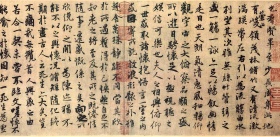 有崇山峻領茂林脩竹又有清流激
湍暎帶左右引以為流觴曲水
列坐其次雖無絲竹管弦之
盛一觴一詠亦足以暢敘幽情
是日也天朗氣清惠風和暢仰
觀宇宙之大俯察品類之盛
所以遊目騁懷足以極視聽之
娛信可樂也夫人之相與俯仰
一世或取諸懷抱悟言一室之內
或因寄所託放浪形骸之外雖
趣舍萬殊靜躁不同當其欣
於所遇蹔得於己怏然自足不
知老之將至及其所之既惓情
隨事遷感慨係之矣向之所
欣俛仰之閒以為陳迹猶不
能不以之興懷況脩短隨化終
期於盡古人云死生亦大矣豈
不痛哉每攬昔人興感之由
若合一契未嘗不臨文嗟悼不